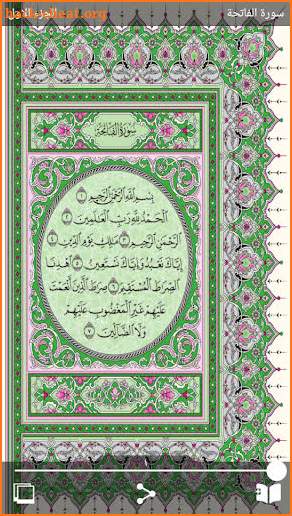 سورة الفاتحة
الجزء الأول
سُورَةُ الفَاتِحَةِ
بِسْمِ ٱللَّهِ ٱلرَّحْمَٰنِ ٱلرَّحِيمِ ١
ٱلْحَمْدُ لِلَّهِ رَبِّ ٱلْعَٰلَمِينَ ٢
ٱلرَّحْمَٰنِ ٱلرَّحِيمِ ٣ مَٰلِكِ يَوْمِ ٱلدِّينِ ٤
إِيَّاكَ نَعْبُدُ وَإِيَّاكَ نَسْتَعِينُ ٥ ٱهْدِنَا
ٱلصِّرَٰطَ ٱلْمُسْتَقِيمَ ٦ صِرَٰطَ ٱلَّذِينَ أَنْعَمْتَ
عَلَيْهِمْ غَيْرِ ٱلْمَغْضُوبِ عَلَيْهِمْ
وَلَا ٱلضَّآلِّينَ ٧